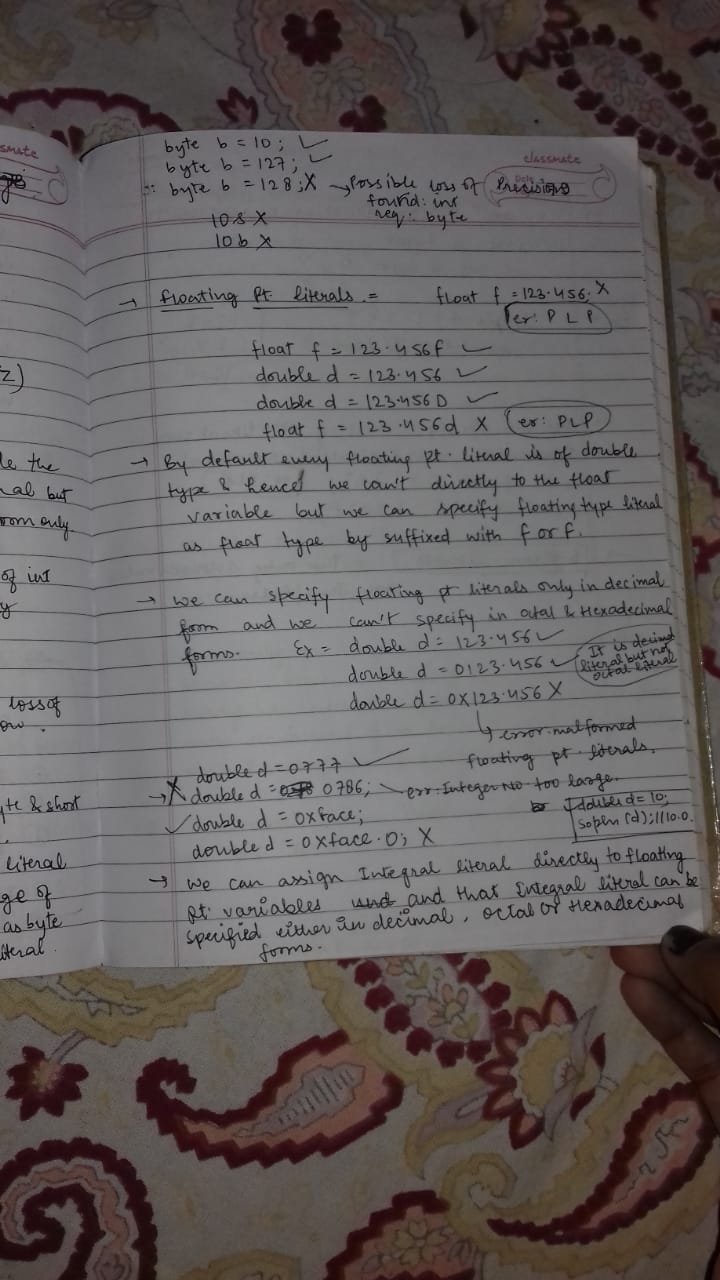 smate
z)
le the
al but
rom only
of int
y
loss of
ow.
yte & short
literal
ge of
as byte
iteral.
classmate
byte b = 10; ✓
byte b = 127; ✓
∵ byte b = 128; X → Possible loss of Precision
found: int
req: byte
10s X
10b X
→ floating Pt. literals = float f = 123.456; X
er: P L P
float f = 123.456f ✓
double d = 123.456 ✓
double d = 123.456D ✓
float f = 123.456d X er: PLP
→ By default every floating pt. literal is of double
type & hence we can't directly to the float
variable but we can specify floating type literal
as float type by suffixed with f or F.
→ We can specify floating pt literals only in decimal
form and we can't specify in octal & Hexadecimal
forms. Ex = double d = 123.456 ✓
double d = 0123.456 ✓ It is decimal
literal but not
octal literal
double d = 0X123.456 X
↳ error: malformed
floating pt. literals.
double d = 0777 ✓
→ X double d = 0786; err: Integer No too large.
✓ double d = 0xface;
double d = 10;
sopln (d); //10.0
double d = 0xface.0; X
→ We can assign Integral literal directly to floating
pt. variables and that Integral literal can be
specified either in decimal, octal or Hexadecimal
forms.